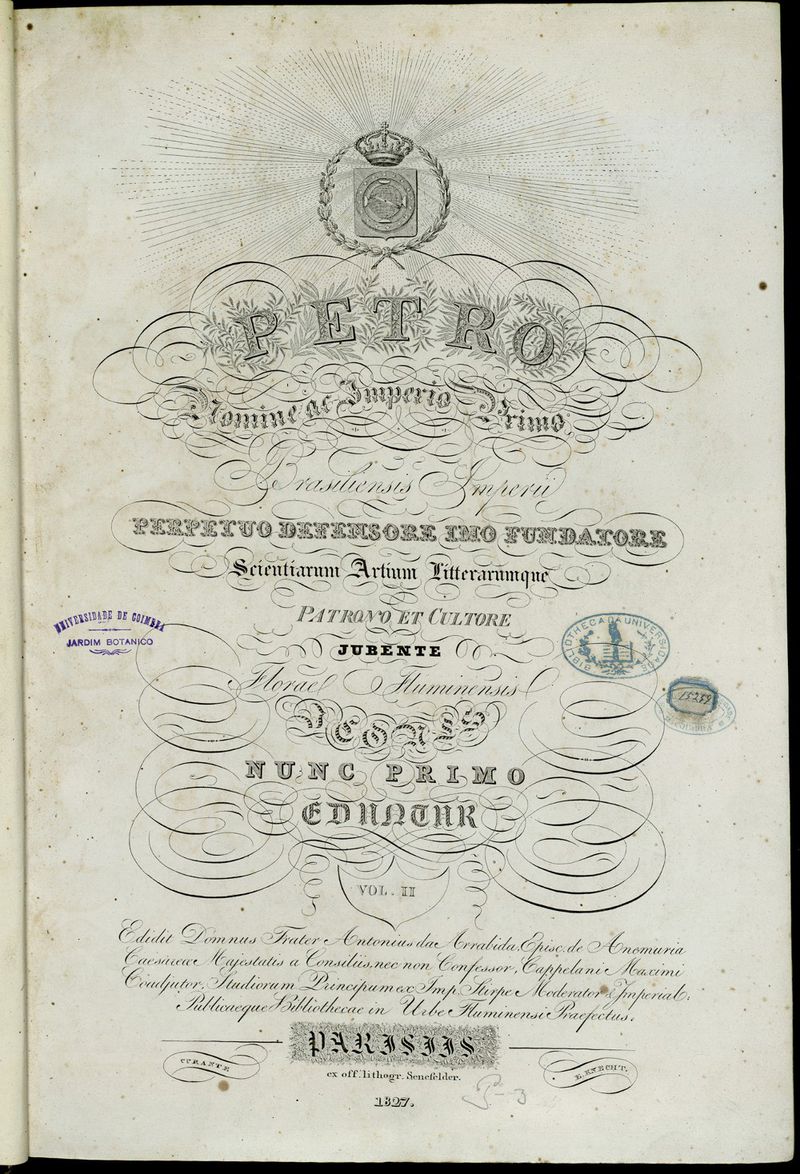 PETRO
Nomine ac Imperio Primo
Brasiliensis Imperii
PERPETUO DEFENSORE IMO FUNDATORE
Scientiarum Artium Litterarumque
PATRONO ET CULTORE
JUBENTE
Florae Fluminensis
ICONES
NUNC PRIMO
EDUNTUR
VOL. II
Edidit Domnus Frater Antonius da Arrabida, Episc. de Anemuria
Caesareae Majestatis a Consiliis, nec non Confessor, Cappelani Maximi
Coadjutor, Studiorum Principum ex Imp. Stirpe Moderator & Imperial.
Publicaeque Bibliothecae in Urbe Fluminensi Praefectus.
PARISIIS
CURANTE
E. KNECHT.
ex off. lithogr. Senefelder.
1827.
UNIVERSIDADE DE COIMBRA
JARDIM BOTANICO
BIBLIOTHECA DA UNIVERSIDADE
15259